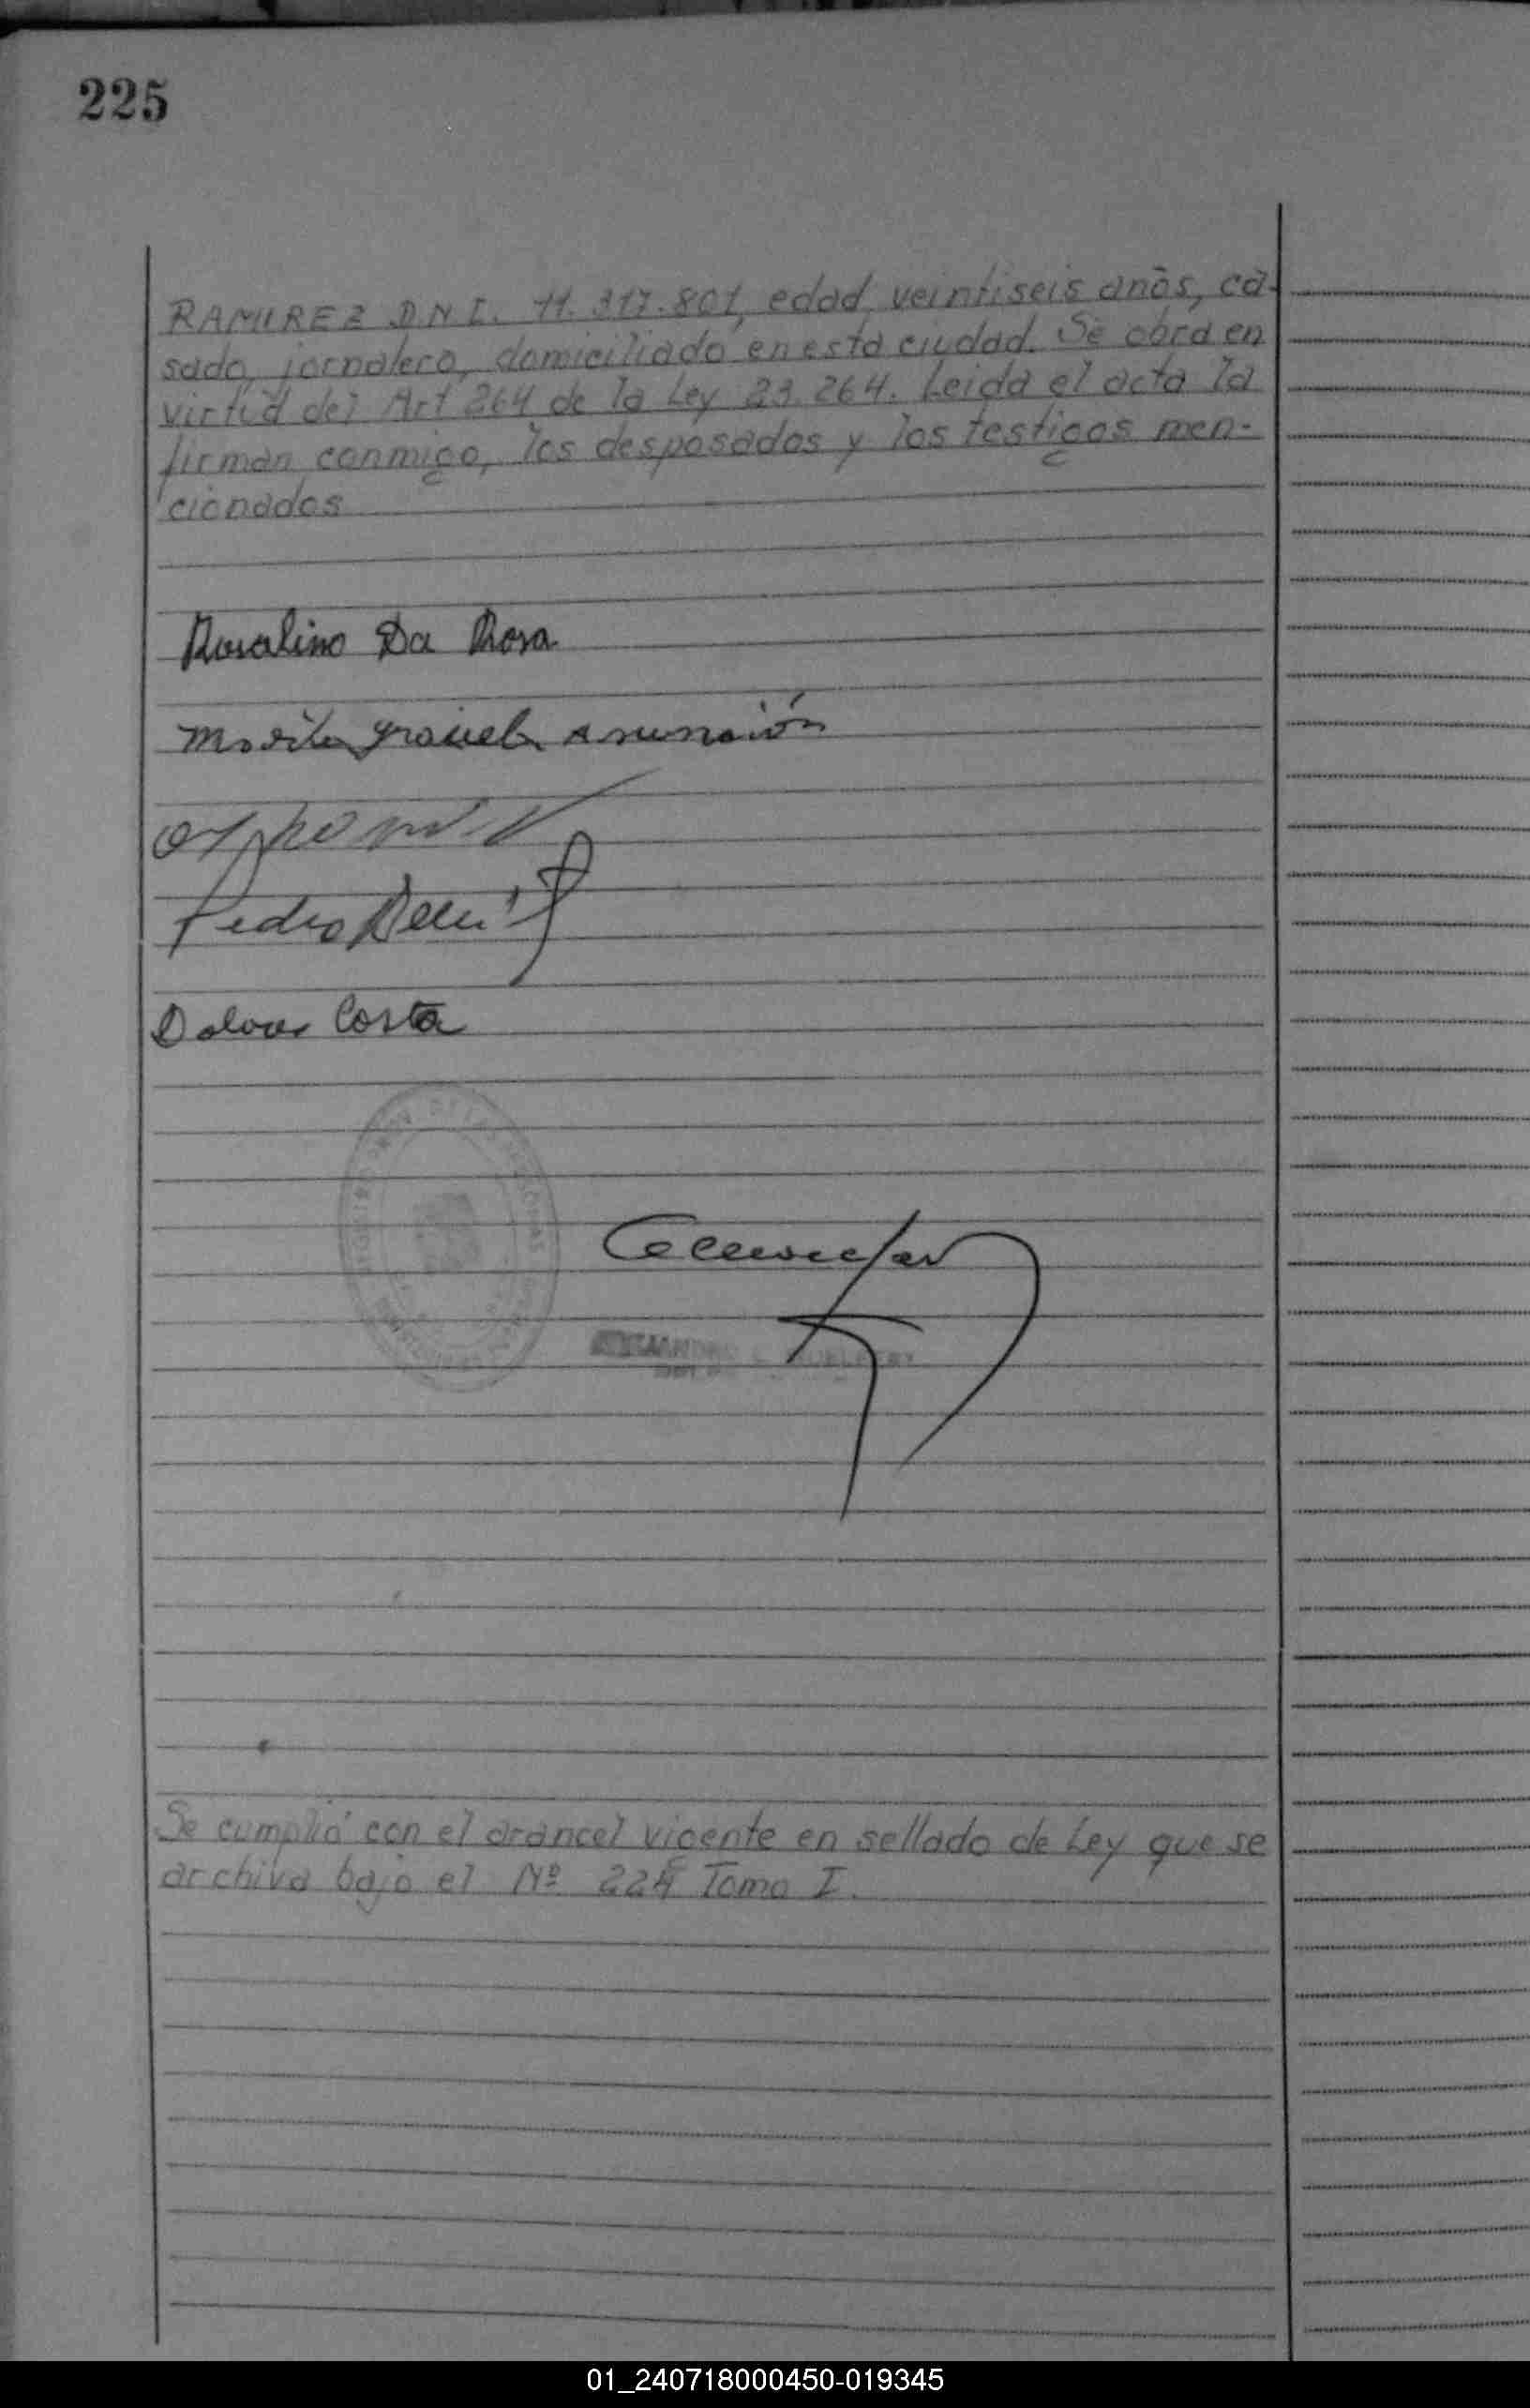 225
RAMIREZ D.N.I. 11.317.801, edad veintiseis años, ca-
sado, jornalero, domiciliado en esta ciudad. Se obra en
virtud del Art 264 de la Ley 23.264. Leida el acta la
firman conmigo, los desposados y los testigos men-
cionados
Rosalino Da Rosa
Maria graciela asunción
Pedro
Dolores Costa
Se cumplió con el arancel vigente en sellado de Ley que se
archiva bajo el Nº 224 Tomo I.
01_240718000450-019345